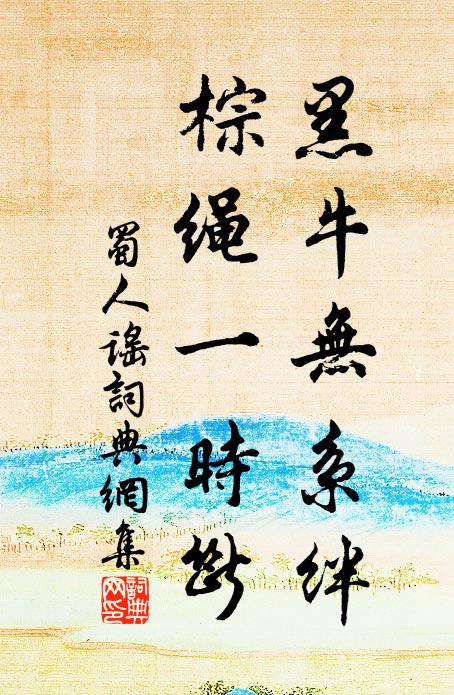 黑牛無系絆
棕繩一時斷
蜀人謠詞典網集